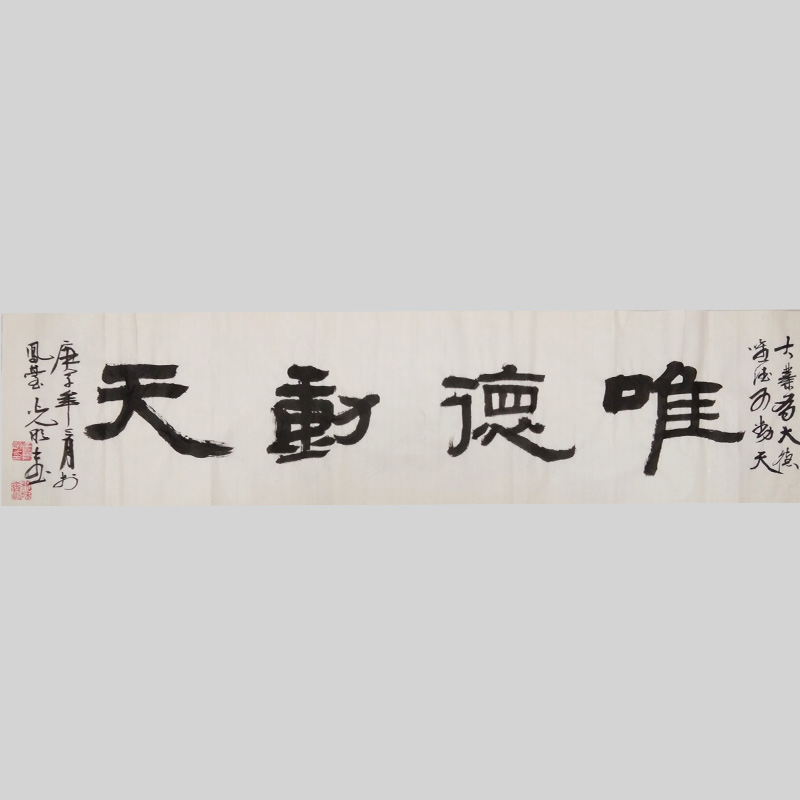 大業為大德
唯德可動天
唯德動天
庚子年三月於
鳳臺光明書